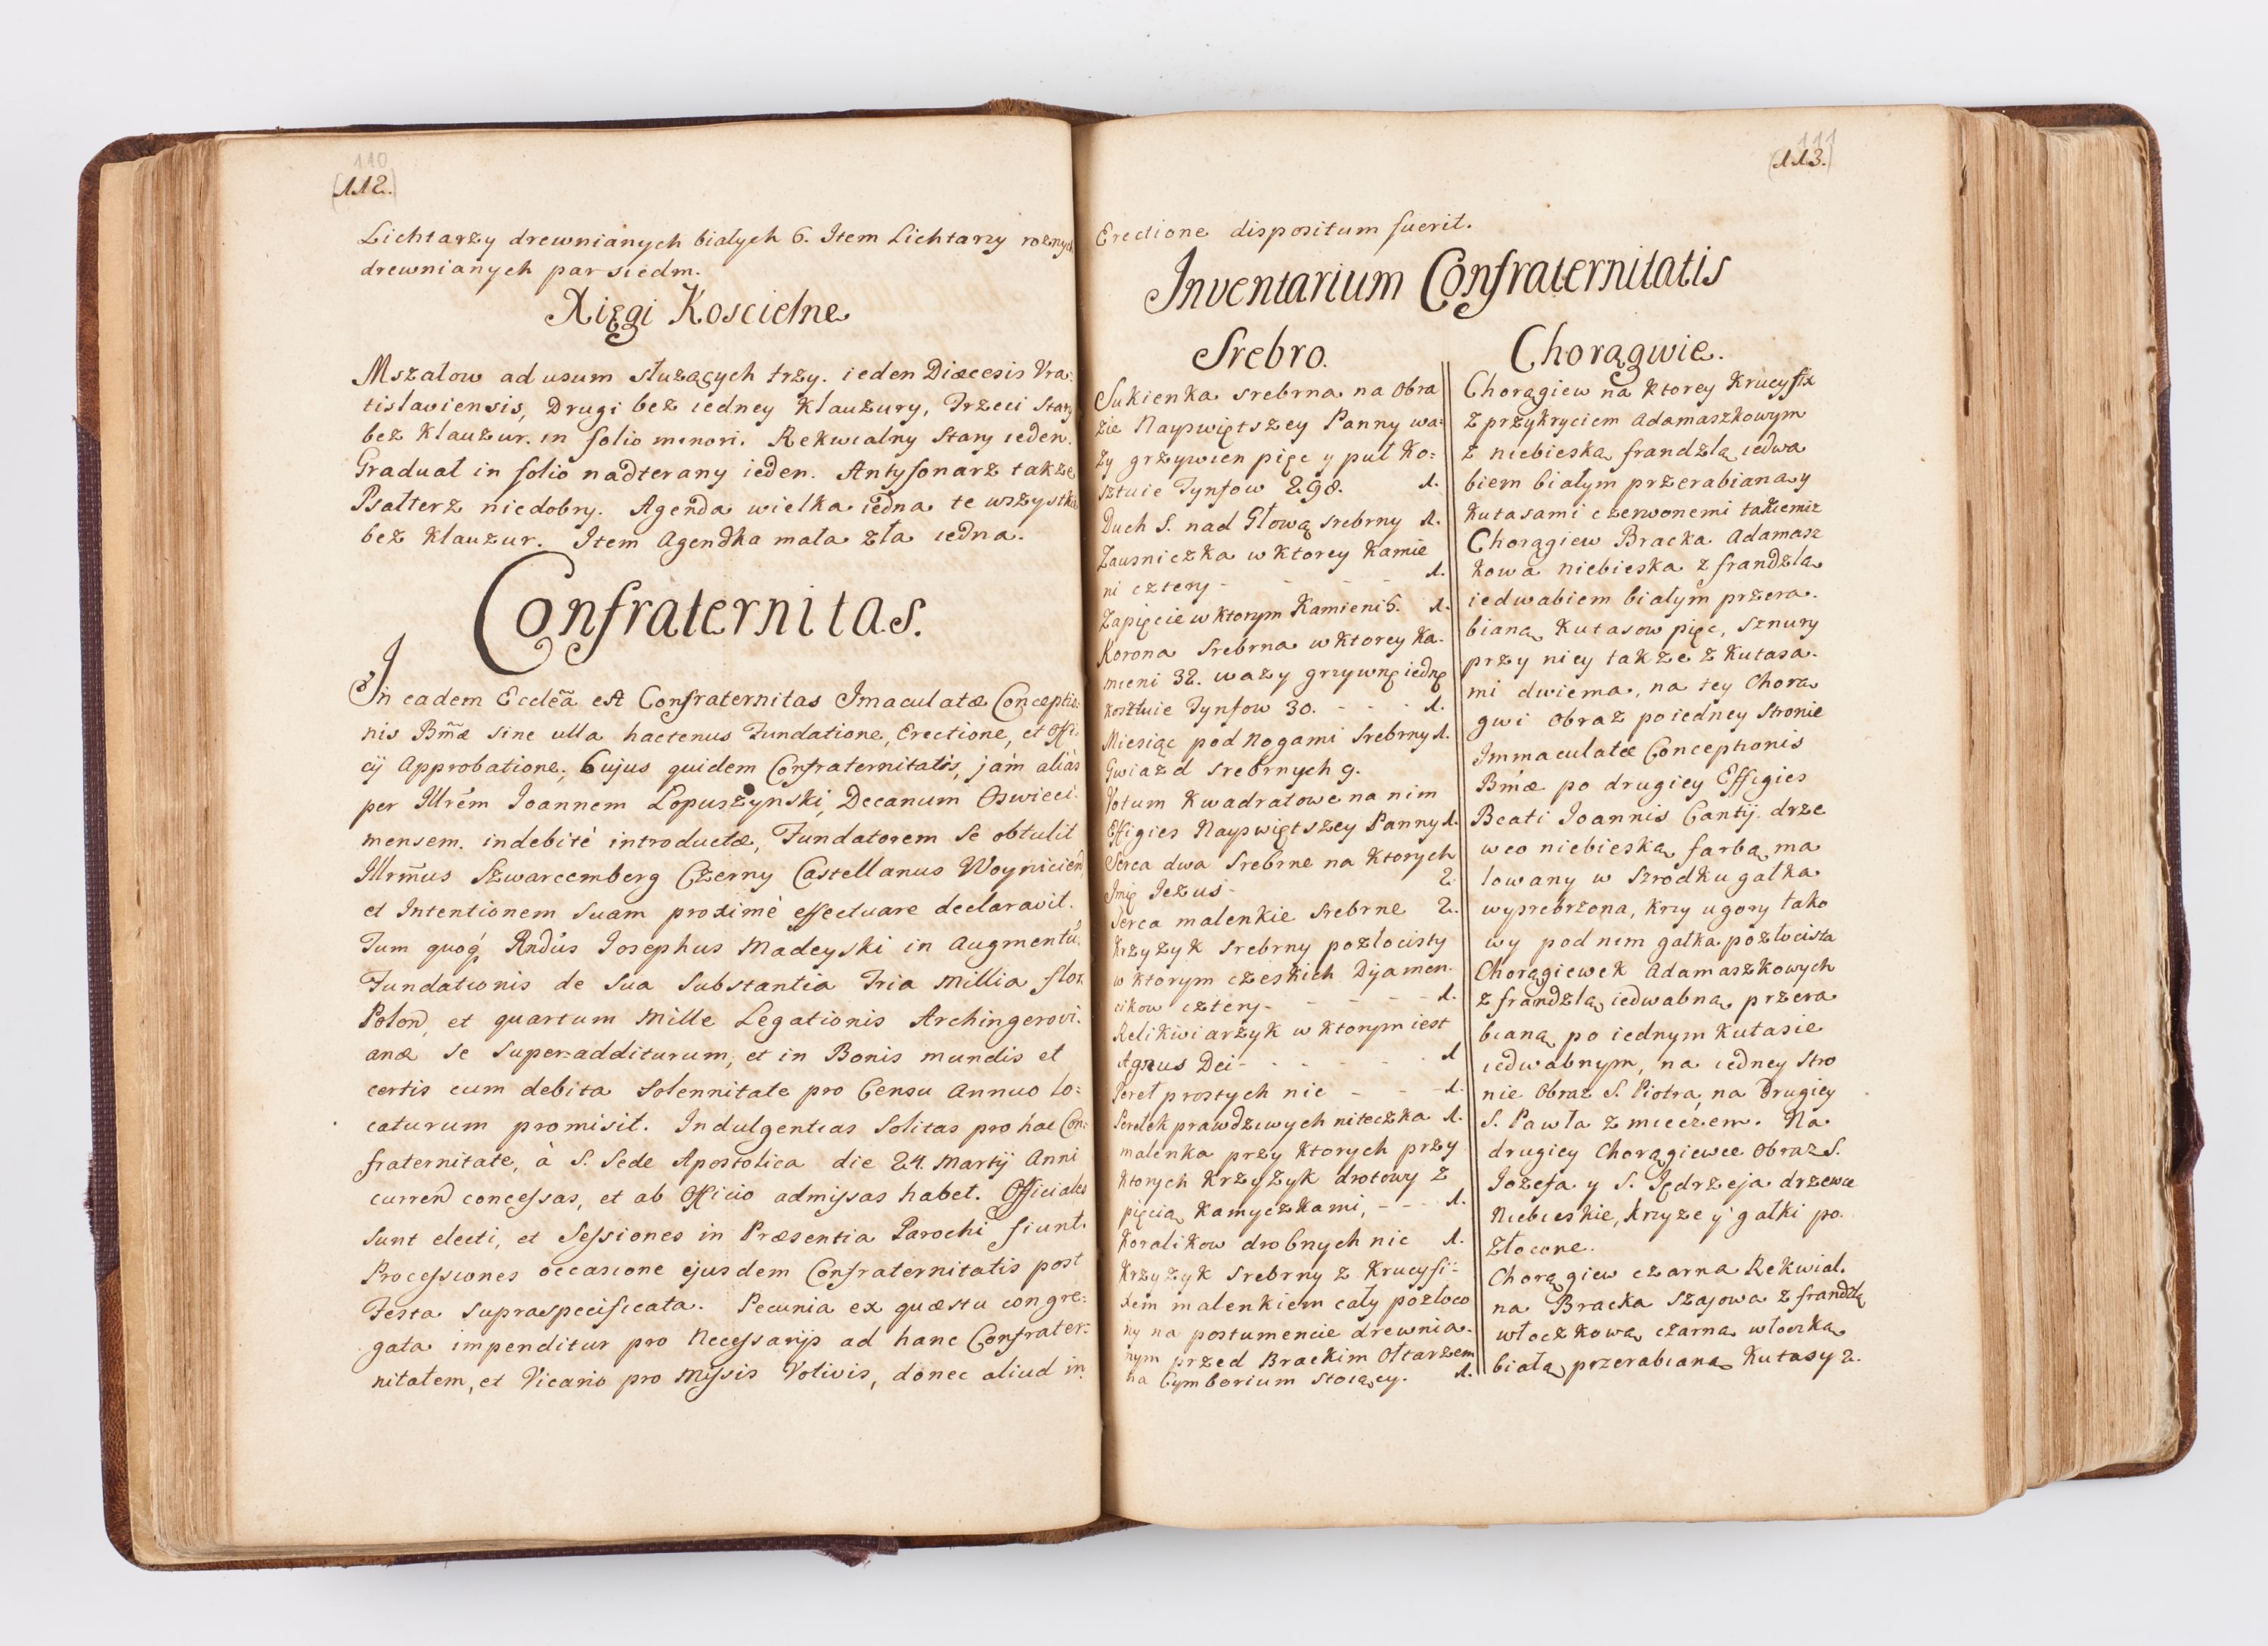 110
112.
Lichtarzy drewnianych białych 6. Item Lichtarzy roznych
drewnianych par siedm.
Xięgi Koscielne
Mszałow ad usum słuzących trzy. ieden Diœcesis Vra:
tislaviensis, Drugi bez iedney Klauzury, Trzeci Stary
bez Klauzur. in folio minori. Rekwialny Stary ieden.
Graduał in folio nadterany ieden. Antyfonarz takze
Psałterz niedobry. Agenda wielka iedna te wszystkie
bez Klauzur. Item Agendka mała zła iedna.
Confraternitas.
In eadem Ecclẽa est Confraternitas Imaculatæ Conceptio:
nis Bm̃æ sine ulla hactenus Fundatione, Erectione, et Offi:
cij Approbatione; Cujus quidem Confraternitatis, jám aliàs
per Illrém Joannem Łopuszynski, Decanum Oswieci:
mensem. indebitè introductæ, Fundatorem se obtulit
Illrm̃us Szwarcemberg Czerny Castellanus Woyniciens,
et Intentionem suam proximè effectuare declaravit.
Tum quoq́, Rndús Josephus Madeyski in Augmentũ
Fundationis de sua substantia Tria Millia flor.
Polon, et quartum Mille Legationis Archingerovi:
anæ se superadditurum, et in Bonis mundis et
certis cum debita solennitate pro Censu Annuo lo:
caturum promisit. Indulgentias solitas pro hac Con:
fraternitate, à S. Sede Apostolica die 24. Martij Anni
curren concessas, et ab Officio admissas habet. Officiales
sunt electi, et Sessiones in Præsentia Parochi fiunt.
Processiones occasione ejusdem Confraternitatis post
Festa supraspecificata. Pecunia ex quæstu congre:
gata impenditur pro Necessarijs ad hanc Confrater:
nitatem, et Vicario pro Missis Votivis, donec aliud in
111
113.
Erectione dispositum fuerit.
Inventarium Confraternitatis
Srebro.
Sukienka srebrna na Obra
zie Nayswiętszey Panny wa:
zy grzywien pięc y puł Ko:
sztuie Tynfow 298. 1.
Duch S. nad Głową srebrny 1.
Zausniczka w ktorey Kamie
ni cztery - - - - 1.
Zapięcie w ktorym Kamieni 6. 1.
Korona srebrna w ktorey Ka.
mieni 32. wazy grzywnę iednę
kosztuie Tynfow 30. - - - 1.
Miesiąc pod Nogami srebrny 1.
Gwiazd srebrnych 9.
Votum Kwadratowe na nim
Effigies Nayswiętszey Panny 1.
Serca dwa srebrne na ktorych
Imię Jezus - 2.
Serca malenkie srebrne 2.
Krzyzyk srebrny pozłocisty
w ktorym czeskich Dyamen.
cikow cztery - - - - - 1.
Relikwiarzyk w ktorym iest
Agnus Dei - - - - - 1
Pereł prostych nic - - 1.
Perełek prawdziwych niteczka 1.
malenka przy ktorych przy
ktorych Krzyzyk drotowy z
pięcią Kamyczkami, - - - 1.
Koralikow drobnych nic 1.
Krzyzyk srebrny z Krucyfi:
xem malenkiem cały pozłoco
ny na postumencie drewnia.
nym przed Brackim Ołtarzem
na Cymborium stoiący. 1.
Chorągwie.
Chorągiew na ktorey Krucyfix
z przykryciem Adamaszkowym
z niebieską frandzlą iedwa
biem białym przerabianą y
Kutasami czerwonemi takiemiz
Chorągiew Bracka Adamasz
kowa niebieska z frandzlą
iedwabiem białym przera.
bianą Kutasow pięc, sznury
przy niey takze z Kutasa.
mi dwiema, na tey Chorą
gwi Obraz po iedney stronie
Immaculatæ Conceptionis
Bmæ po drugiey Effigies
Beati Joannis Cantij. drze
weo niebieską farbą ma
lowany w srodku gałka
wysrebrzona, krzy u gory tako
wy pod nim gałka pozłocista
Chorągiewek Adamaszkowych
z frandzlą iedwabną przera
bianą po iednym Kutasie
iedwabnym, na iedney stro
nie Obraz S. Piotra, na drugiey
S. Pawła z mieczem. Na
drugiey Chorągiewce Obraz S.
Jozefa y S. Jędrzeja drzewce
Niebieskie, krzyze y gałki po.
złocone.
Chorągiew czarna Rekwial.
na Bracka szajowa z frandzlą
włoczkową czarną włoczką
białą przerabianą Kutasy 2.